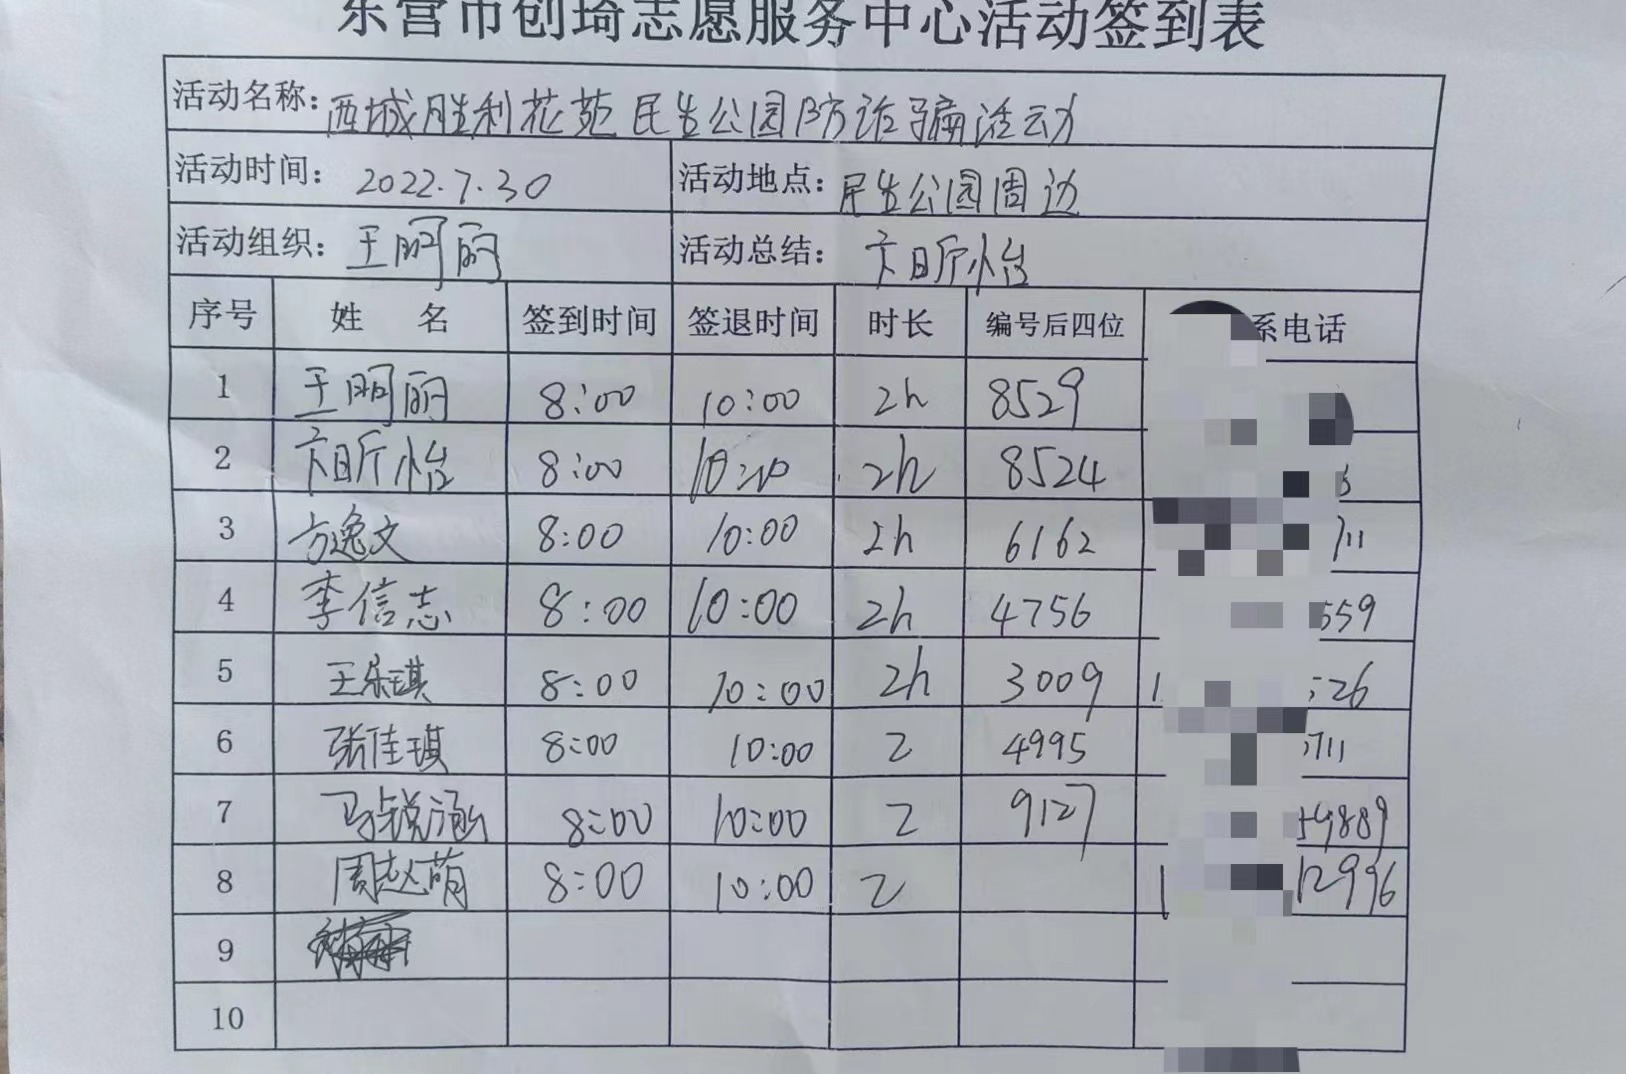 东营市创琦志愿服务中心活动签到表
活动名称：西城胜利花苑民生公园防诈骗活动
活动时间：2022.7.30 活动地点：民生公园周边
活动组织：王丽 活动总结：卞昕怡
序号 姓 名 签到时间 签退时间 时长 编号后四位 系电话
1 王丽 8:00 10:00 2h 8529
2 卞昕怡 8:00 10:00 2h 8524
3 方逸文 8:00 10:00 2h 6162 711
4 李信志 8:00 10:00 2h 4756 559
5 王乐琪 8:00 10:00 2h 3009 1 526
6 张佳琪 8:00 10:00 2 4995 711
7 马锐涵 8:00 10:00 2 9127 9889
8 周赵萌 8:00 10:00 2 1 12996
9
10